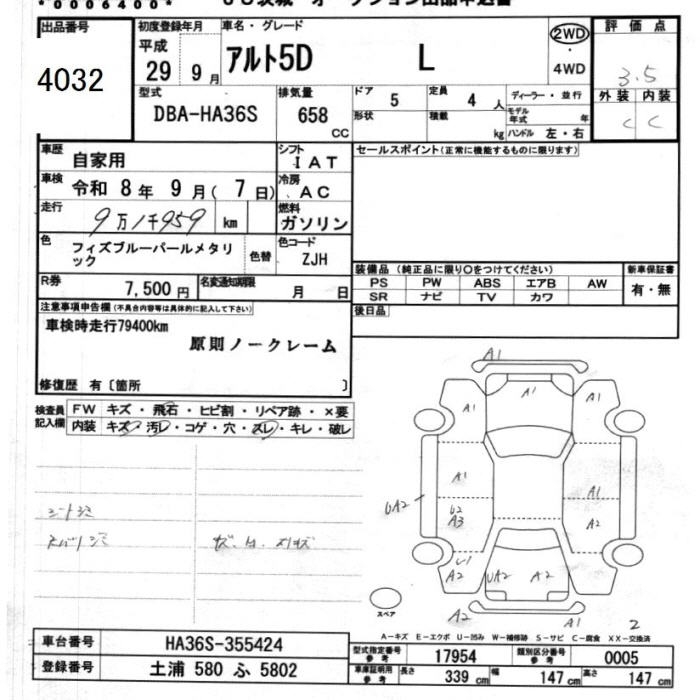 *0006400*
出品番号
4032
初度登録年月
平成
29年 9月
車名・グレード
アルト5D L
2WD
・
4WD
評価点
3.5
外装 内装
C C
型式
DBA-HA36S
排気量
658
CC
ドア
5
形状
定員
4人
積載
kg
ディーラー・並行
モデル年式 年
ハンドル 左・右
車歴
自家用
シフト
IAT
セールスポイント(正常に機能するものに限ります)
車検
令和 8年 9月( 7日)
冷房
AC
走行
9万1千959 km
燃料
ガソリン
色
フィズブルーパールメタリ
ック
色替
色コード
ZJH
装備品(純正品に限り○をつけてください)
新車保証書
PS PW ABS エアB AW
有・無
SR ナビ TV カワ
R券
7,500円
名変通知期限
月 日
後日品
注意事項申告欄(不具合内容等は具体的に記入して下さい)
車検時走行79400km
原則ノークレーム
修復歴 有〔箇所 〕
検査員
記入欄
FW キズ・飛石・ヒビ割・リペア跡・×要
内装 キズ・汚レ・コゲ・穴・スレ・キレ・破レ
A1
A1
A1
A1
A1
A1
UA2
U2
A3
A2
U1
A2
UA2
A2
A2
A1
2
スペア
A-キズ E-エクボ U-凹み W-補修跡 S-サビ C-腐食 XX-交換済
車台番号
HA36S-355424
登録番号
土浦 580 ふ 5802
型式指定番号
参考
17954
類別区分番号
参考
0005
車庫証明用
参考
長さ 339 cm 幅 147 cm 高さ 147 cm